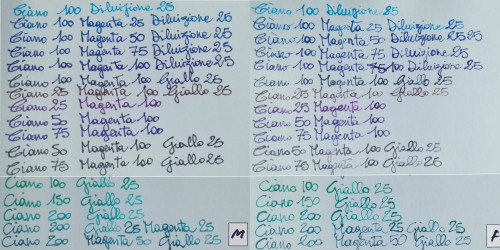 Ciano 100 Diluizione 25
Ciano 100 Magenta 25 Diluizione 25
Ciano 100 Magenta 50 Diluizione 25
Ciano 100 Magenta 75 Diluizione 25
Ciano 100 Magenta 100 Diluizione 25
Ciano 100 Magenta 100 Giallo 25
Ciano 25 Magenta 100 Giallo 25
Ciano 25 Magenta 100
Ciano 50 Magenta 100
Ciano 75 Magenta 100
Ciano 50 Magenta 100 Giallo 25
Ciano 75 Magenta 100 Giallo 25
Ciano 100 Giallo 25
Ciano 150 Giallo 25
Ciano 200 Giallo 25
Ciano 200 Giallo 25 Magenta 25
Ciano 200 Magenta 50 Giallo 25
M
Ciano 100 Diluizione 25
Ciano 100 Magenta 25 Diluizione 25
Ciano 100 Magenta 50 Diluizione 25 25
Ciano 100 Magenta 75 Diluizione 25
Ciano 100 Magenta 100 Diluizione 25
Ciano 100 Magenta 100 Giallo 25
Ciano 25 Magenta 100 Giallo 25
Ciano 25 Magenta 100
Ciano 50 Magenta 100
Ciano 75 Magenta 100
Ciano 50 Magenta 100 Giallo 25
Ciano 75 Magenta 100 Giallo 25
Ciano 100 Giallo 25
Ciano 150 Giallo 25
Ciano 200 Giallo 25
Ciano 200 Magenta 25 Giallo 25
Ciano 200 Magenta 50 Giallo 25